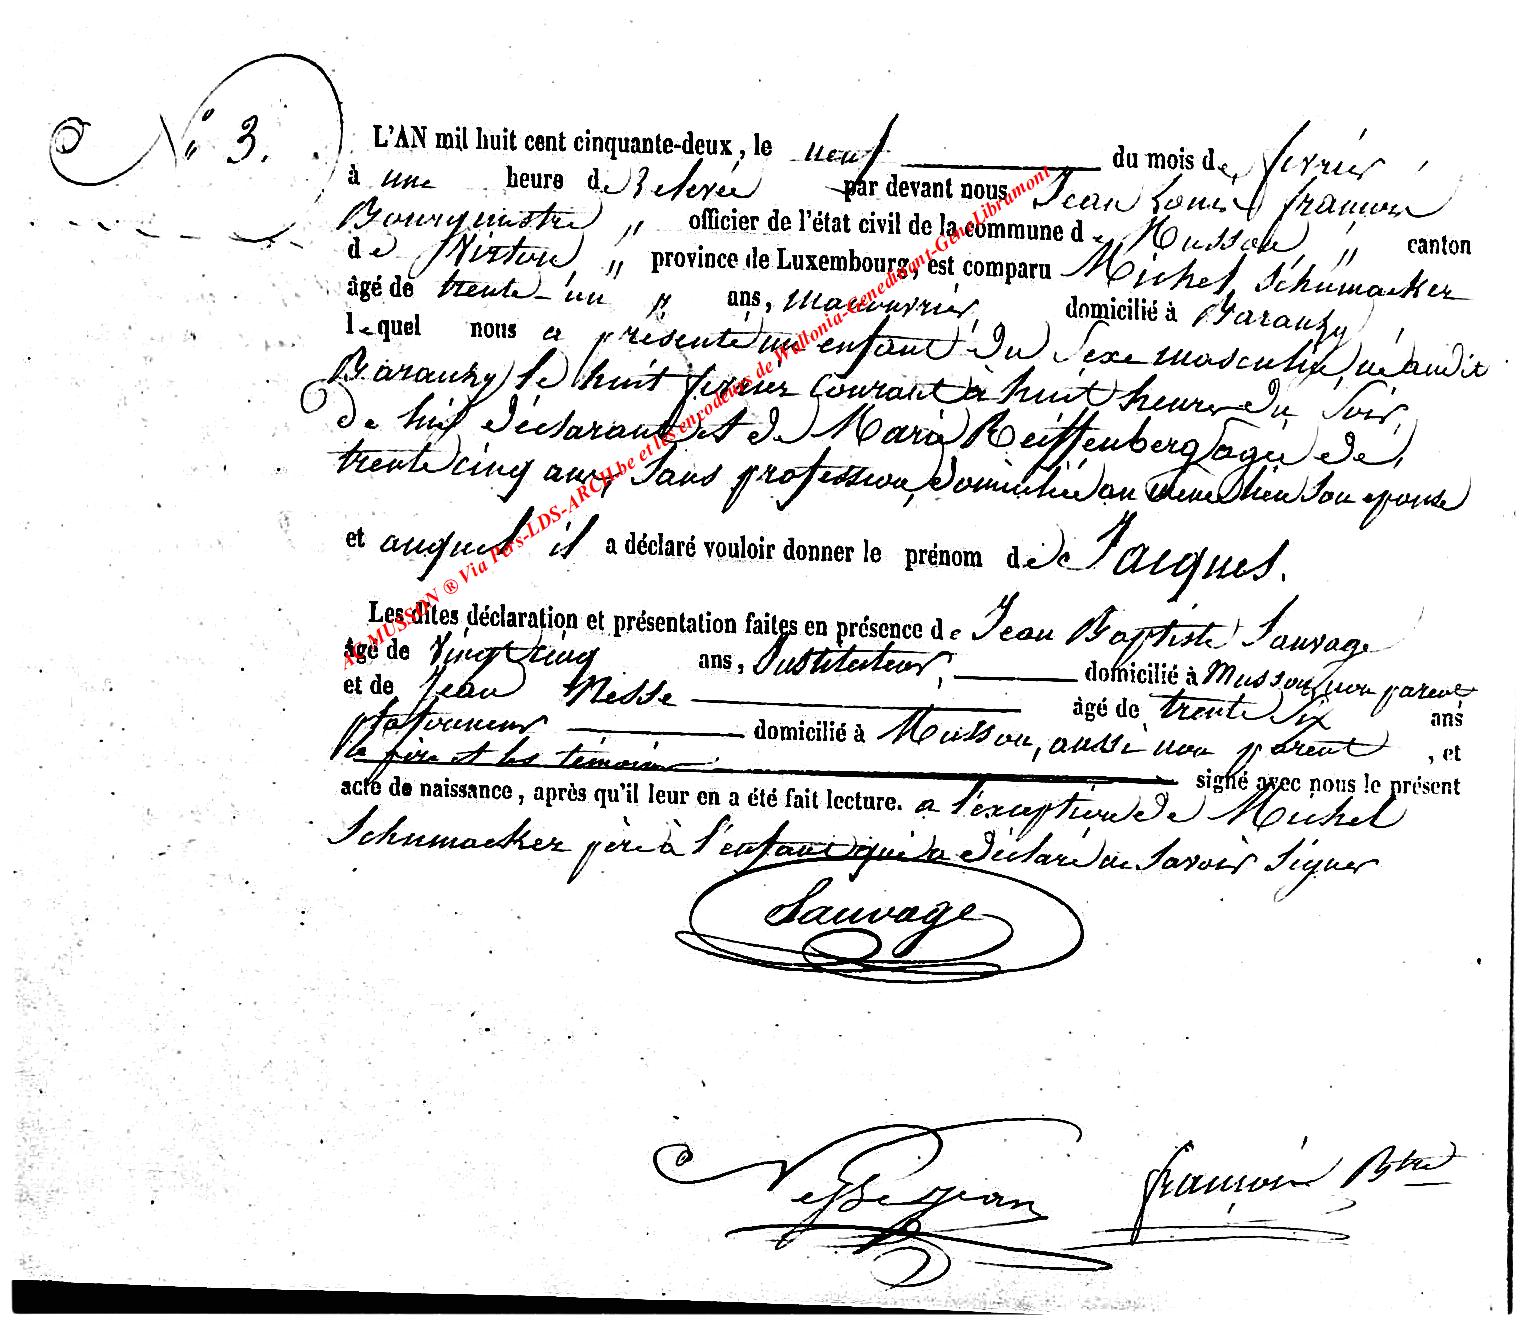 N° 3.
L'AN mil huit cent cinquante-deux, le neuf du mois de février
à une heure de relevée par devant nous Jean Louis françois
Bourgmestre officier de l'état civil de la commune de Musson, canton
de Virton, province de Luxembourg, est comparu Michel Schumacker
âgé de trente-un ans, manouvrier, domicilié à Baranzy,
lequel nous a présenté un enfant du sexe masculin, né audit
Baranzy le huit février courant à huit heures du soir,
de lui déclarant et de Marie Reiffenberg agée de
trente cinq ans, sans profession, domiciliée au même lieu son épouse
et auquel il a déclaré vouloir donner le prénom de Jacques.
Les dites déclaration et présentation faites en présence de Jean Baptiste Sauvage
âgé de vingt cinq ans, Instituteur, domicilié à Musson, non parent
et de Jean Nesse âgé de trente six ans
plafonneur domicilié à Musson, aussi non parent, et
le père et les témoins signé avec nous le présent
acte de naissance, après qu'il leur en a été fait lecture. a l'exception de Michel
Schumacker père à l'enfant qui a déclaré ne savoir signer
Sauvage
Nesse jean
françois Btre
AC MUSSON ® Via Pers-LDS-ARCH.be et les encodeurs de Wallonia-Genedinant-GeneLibramont